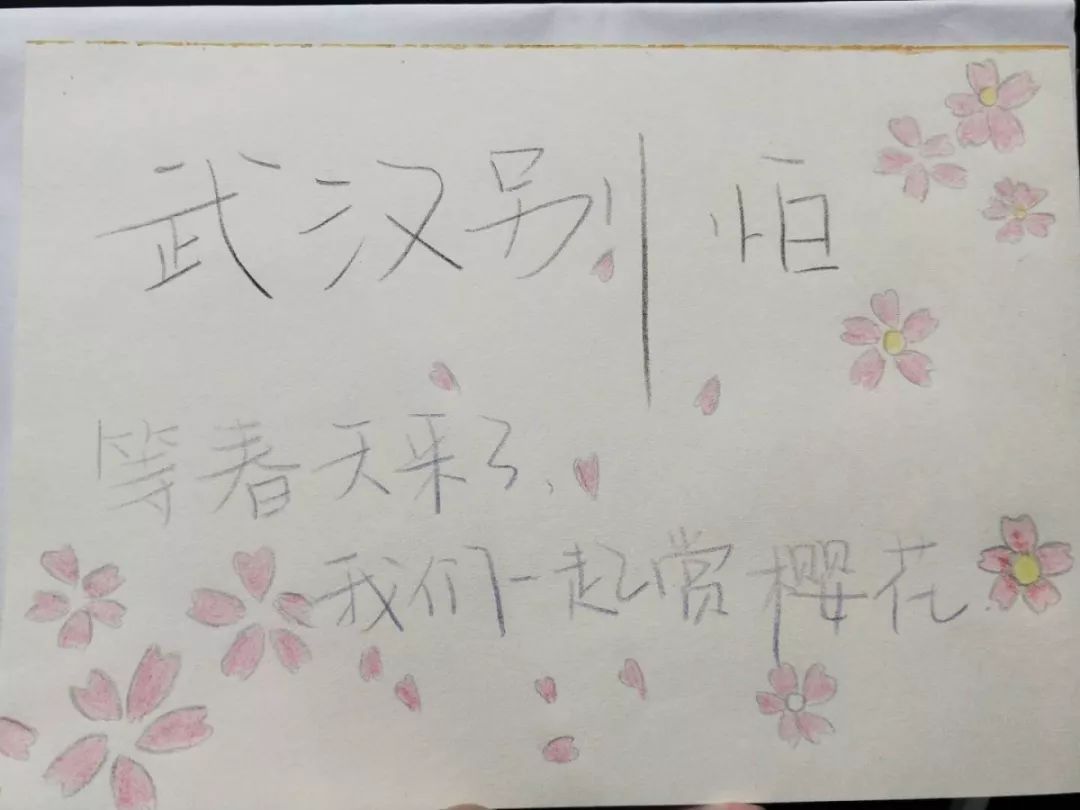 武汉别怕
等春天来了,
我们一起赏樱花